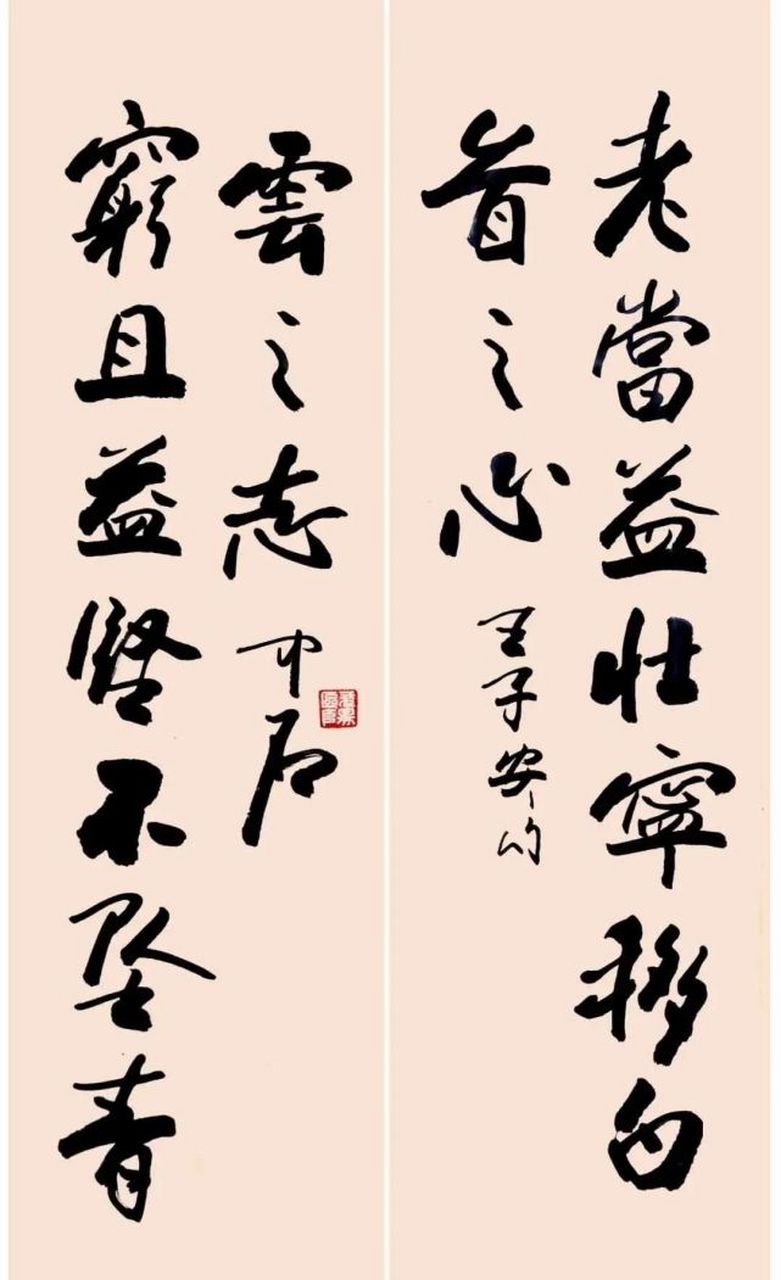 老當益壮寧移白
首之心
王子安句
窮且益堅不坠青
雲之志
中石